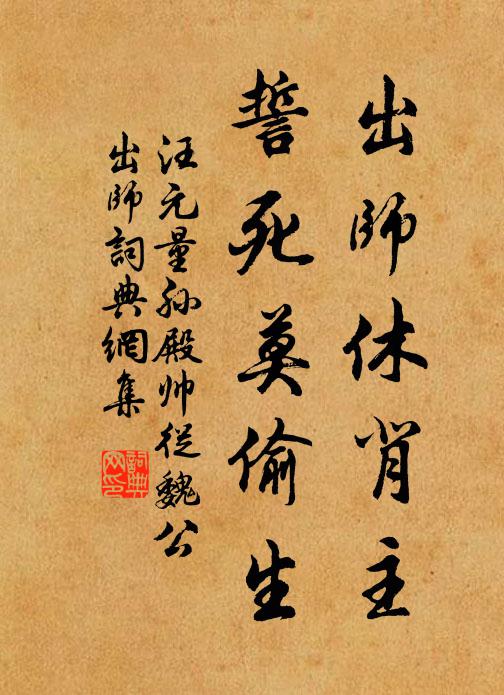 出師休背主
誓死莫偷生
汪元量孙殿帅從魏公
出師詞典網集
詞典网印